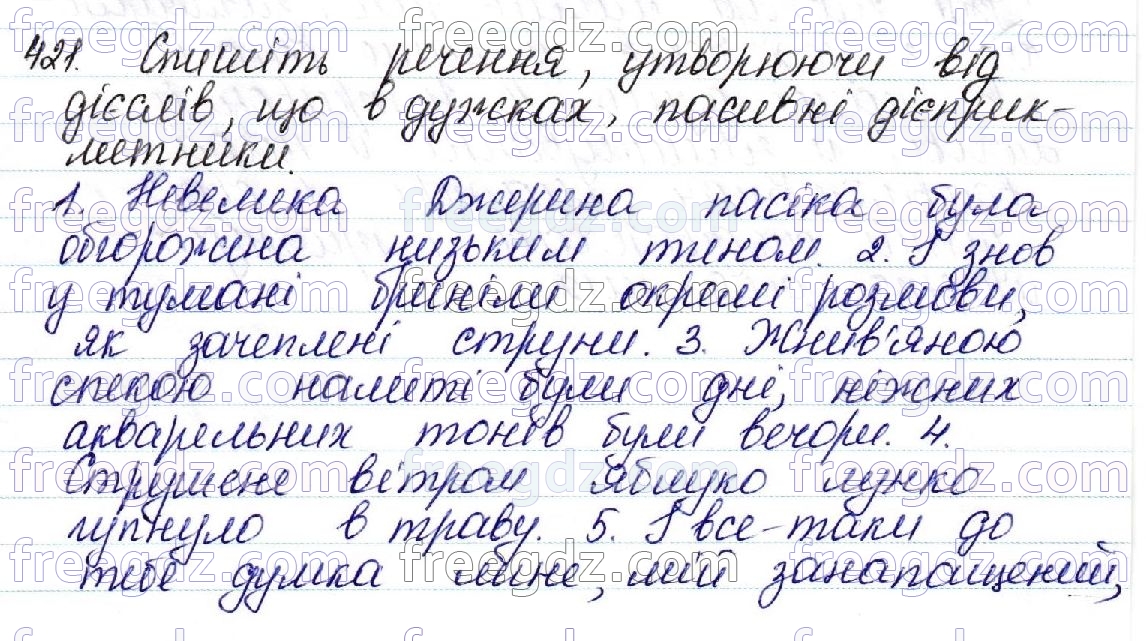 421. Спишіть речення, утворюючи від
дієслів, що в дужках, пасивні дієприк-
метники.
1. Невелика Джерина пасіка була
обгорожена низьким тином. 2. І знов
у тумані бриніли окремі розмови,
як зачеплені струни. 3. Жнив'яною
спекою налиті були дні, ніжних
акварельних тонів були вечори. 4.
Струшене вітром яблуко лунко
гупнуло в траву. 5. І все-таки до
тебе думка лине, мій занапащений,